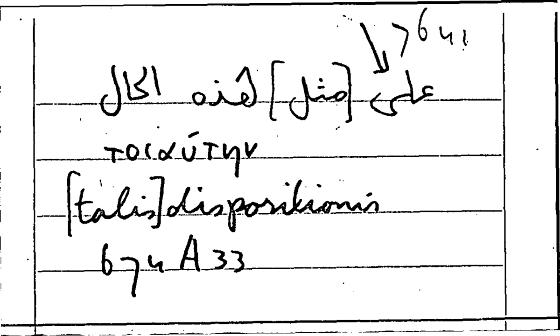 7641
على [مثل] هذه الحال
τοιαύτην
[talis] dispositionis
674 A 33